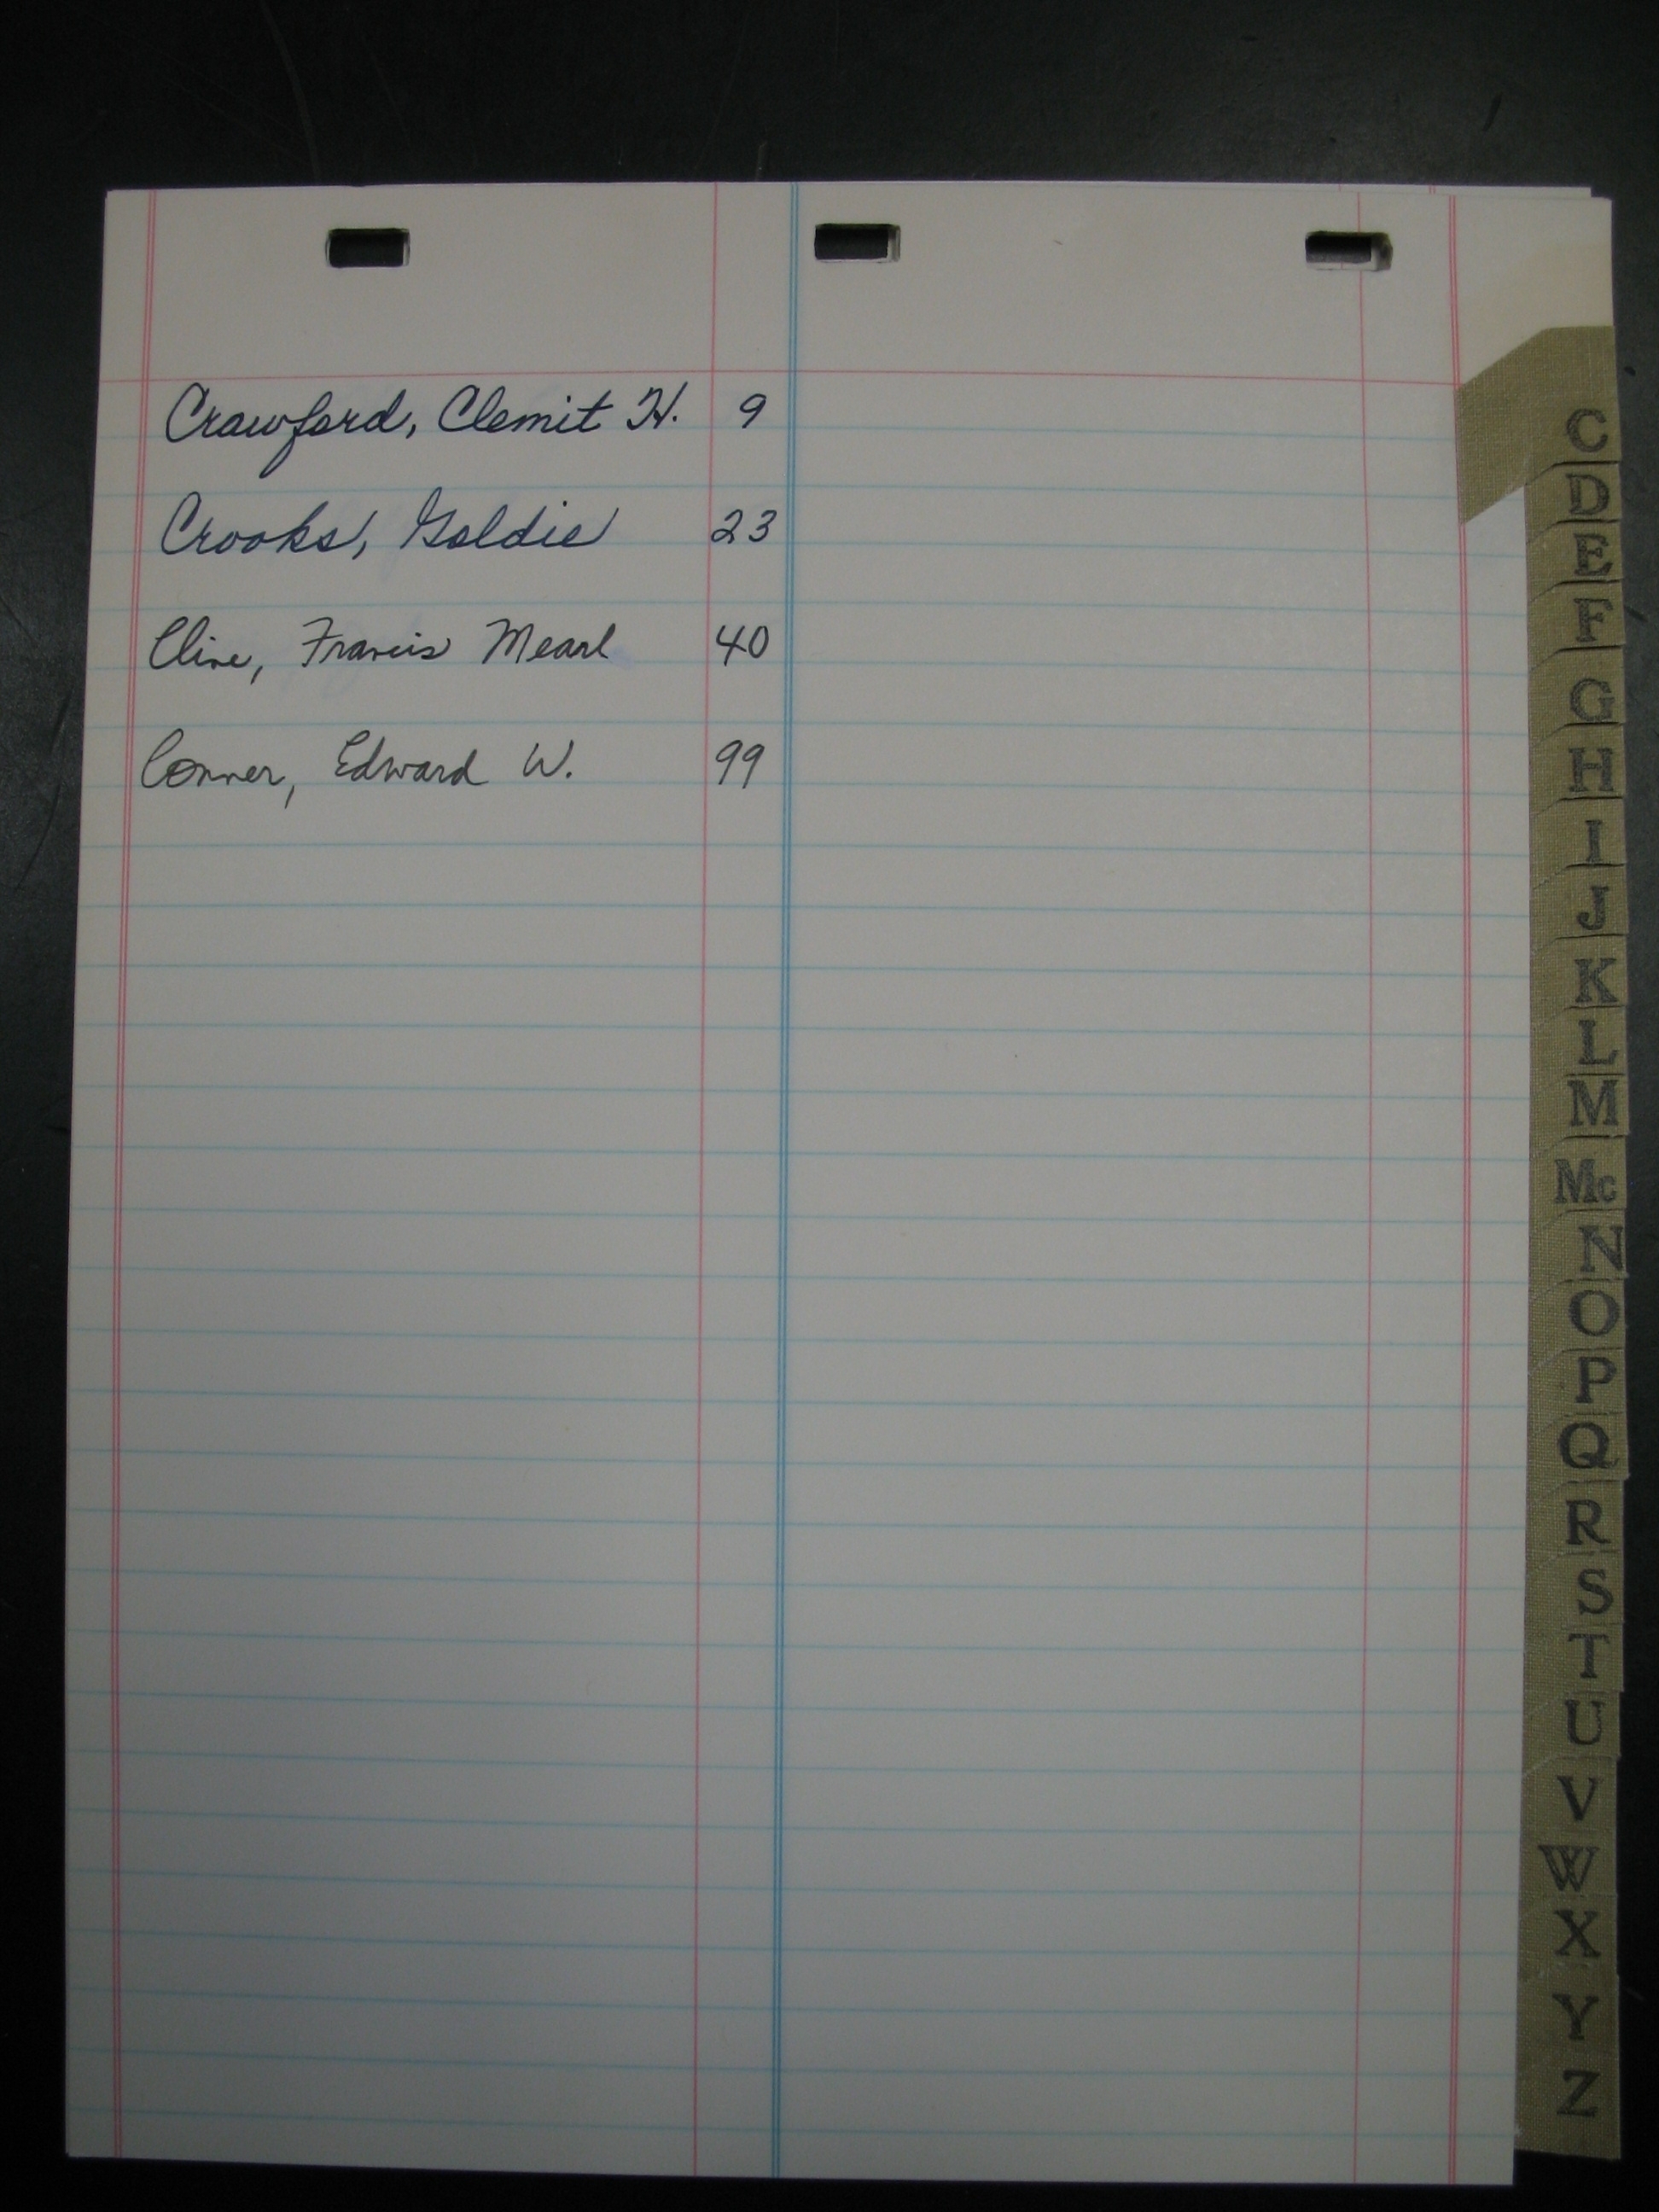 Crawford, Clemit H. 9
Crooks, Goldie 23
Cline, Francis Mearl 40
Conner, Edward W. 99
C
D
E
F
G
H
I
J
K
L
M
Mc
N
O
P
Q
R
S
T
U
V
W
X
Y
Z